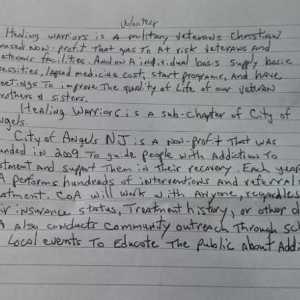 Volunteer
Healing Warriors is a military veterans Christian
based non-profit that gas to At risk veterans and
facilities. And on A individual basis supply basic
medicine cost, start programs, and have
meetings To improve The quality of life of our veteran
brothers & sisters.
Healing Warriors is a sub-chapter of City of
Angels.
City of Angels NJ is a non-profit That was
founded in 2009 To guide people with addiction To
treatment and support Them in Their recovery. Each year
CoA performs hundreds of interventions and referrals
treatment. CoA will work with Anyone, regardless
insurance status, Treatment history, or other
also conducts community outreach Through
Local events To Educate The public about